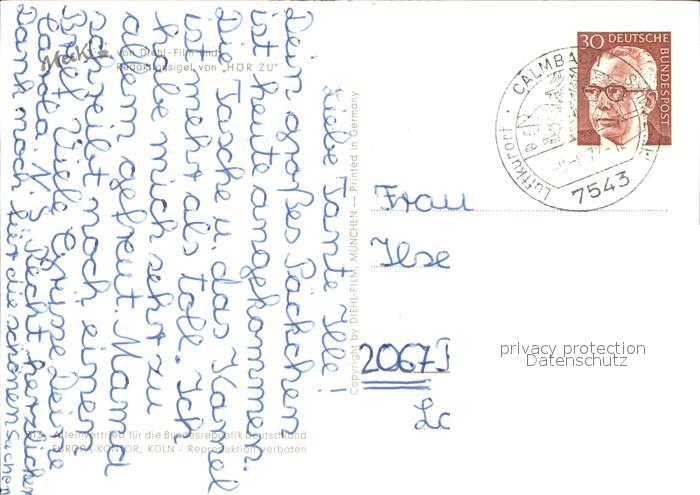 Mecki
von Diehl-Film und
Redaktionsigel von "HÖR ZU"
Liebe Tante Ille!
Dein großes Päckchen
ist heute angekommen.
Die Tasche u. das Kamel
ist mehr als toll. Ich
habe mich sehr zu
allem gefreut. Mama
schreibt noch einen
Brief. Viele Grüsse Deine
Carola. N.S. Recht herzlichen
Dank noch für die schönen Sachen
Copyright by DIEHL-FILM, MÜNCHEN — Printed in Germany
Alleinvertrieb für die Bundesrepublik Deutschland
EUROPA-KONTOR, KÖLN - Reproduktion verboten
30 DEUTSCHE
BUNDESPOST
CALMBACH
Luftkurort
7543
Frau
Ilse
2067
privacy protection
Datenschutz